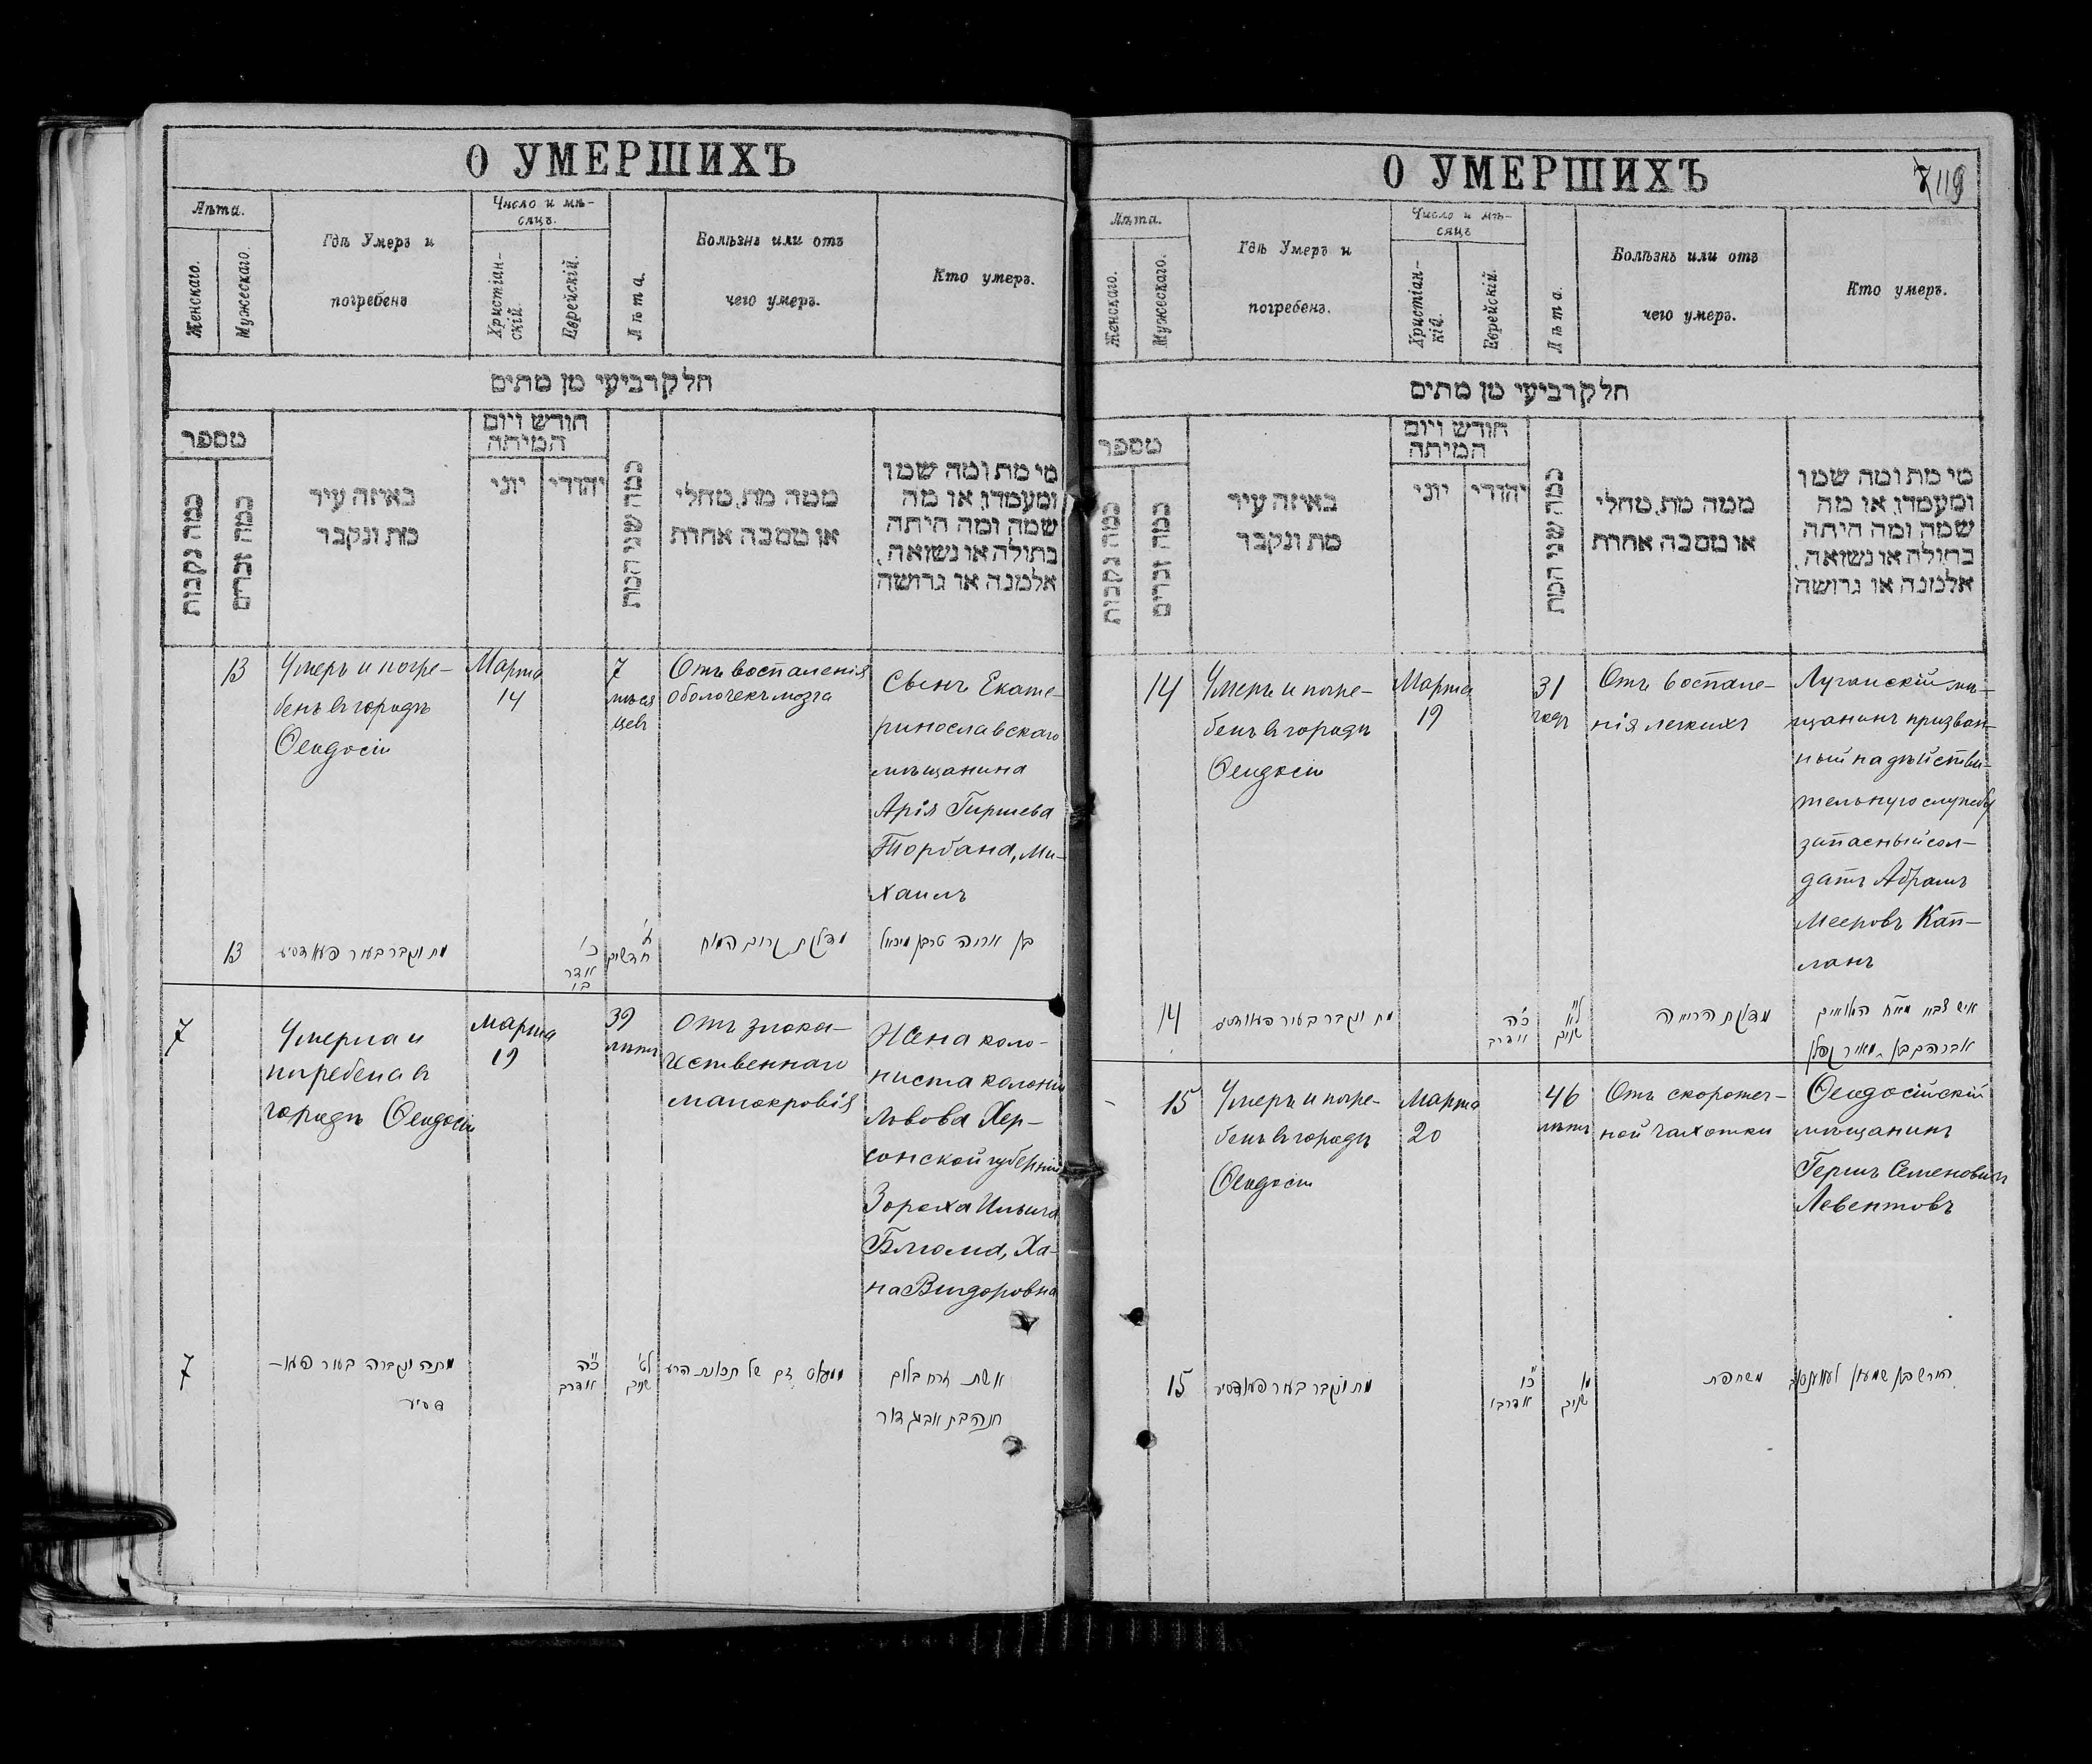 О УМЕРШИХЪ
Лѣта.
Женскаго.
Мужескаго.
Гдѣ Умеръ и
погребенъ
Число и мѣ-
сяцъ.
Христіан-
скій.
Еврейскій.
Лѣта.
Болѣзнь или отъ
чего умеръ.
Кто умеръ.
חלק רביעי מן מתים
מספר
כמה נקבות
כמה זכרים
באיזה עיר
מת ונקבר
חודש ויום
המיתה
יוני
יהודי
כמה שני המת
ממה מת, מחלי
או מסבה אחרת
מי מת ומה שמו
ומעמדו, או מה
שמה ומה היתה
בתולה או נשואה,
אלמנה או גרושה
13
Умеръ и погре-
бенъ въ городѣ
Ѳеодосіи
Марта
14
7
мѣся
цевъ
Отъ воспаленія
оболочекъ мозга
Сынъ Екате-
ринославскаго
мѣщанина
Арія Гиршева
Торбана, Ми-
хаилъ
13
מת ונקבר בעיר פעאדסיע
אדר
חדשים
מדלקת קרום המוח
בן אריה טרבן מיכאל
7
Умерла и
погребена въ
городѣ Ѳеодосіи
Марта
19
39
лѣтъ
Отъ злока-
чественнаго
малокровія
Жена коло-
ниста колоніи
Львова Хер-
сонской губерніи
Зораха Ильича
Блюма, Ха-
на Вигдоровна
7
מתה ונקברה בעיר פעא-
דסיע
כ״ה
שנים
אשת זרח בלום
חנה בת אביגדור
О УМЕРШИХЪ
119
Лѣта.
Женскаго.
Мужескаго.
Гдѣ Умеръ и
погребенъ.
Число и мѣ-
сяцъ
Христіан-
кій.
Еврейскій.
Лѣта.
Болѣзнь или отъ
чего умеръ.
Кто умеръ.
חלק רביעי מן מתים
מספר
כמה נקבות
כמה זכרים
באיזה עיר
מת ונקבר
חודש ויום
המיתה
יוני
יהודי
כמה שני המת
ממה מת, מחלי
או מסבה אחרת
מי מת ומה שמו
ומעמדו, או מה
שמה ומה היתה
בתולה או נשואה,
אלמנה או גרושה
14
Умеръ и погре-
бенъ въ городѣ
Ѳеодосіи
Марта
19
31
годъ
Отъ воспале-
нія легкихъ
Луганскій мѣ-
щанинъ призван-
ный на дѣйстви-
тельную службу
запасный сол-
датъ Абрамъ
Мееровъ Кап-
ланъ
14
מת ונקבר בעיר פעאדסיע
כ״ה
ל״א
שנים
מדלקת הריאה
איש צבא
אברהם בן מאיר קפלן
15
Умеръ и погре-
бенъ въ городѣ
Ѳеодосіи
Марта
20
46
лѣтъ
Отъ скоротеч-
ной чахотки
Ѳеодосійскій
мѣщанинъ
Гершъ Семеновичъ
Левентовъ
15
מת ונקבר בעיר פעאדסיע
כ״ו
שנים
משחפת
הירש בן שמעון לעווענטאוו